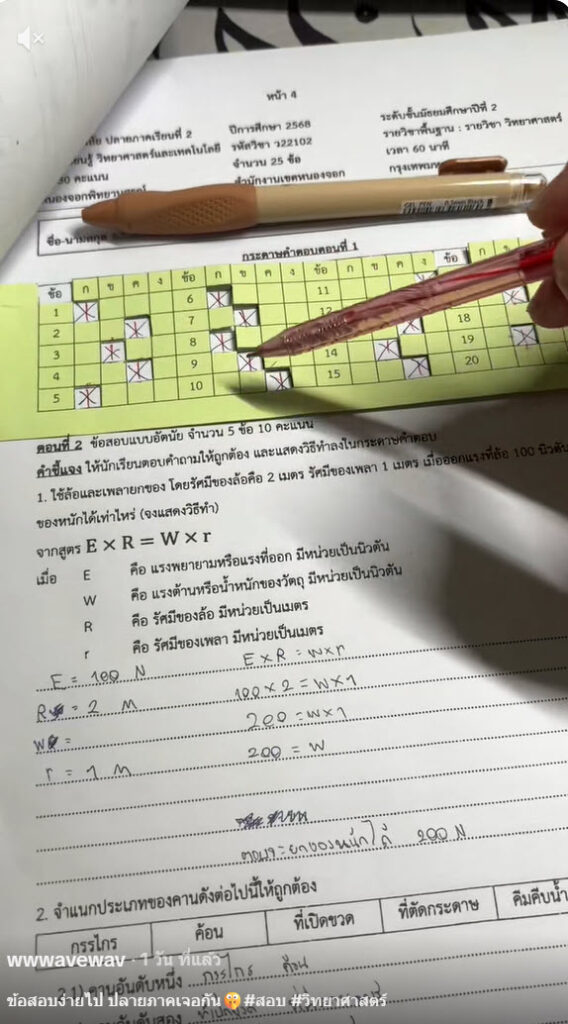 หน้า 4
ปลายภาคเรียนที่ 2 ปีการศึกษา 2568 ระดับชั้นมัธยมศึกษาปีที่ 2
วิทยาศาสตร์และเทคโนโลยี รหัสวิชา ว22102 รายวิชาพื้นฐาน : รายวิชา วิทยาศาสตร์
คะแนน จำนวน 25 ข้อ เวลา 60 นาที
สำนักงานเขตหนองจอก
ชื่อ-นามสกุล
กระดาษคำตอบตอนที่ 1
ข้อ ก ข ค ง ข้อ ก ข ค ง ข้อ ก ข ค ง ข้อ ก
1 6 11
2 7 12
3 8 18
4 9 14 19
5 10 15 20
ตอนที่ 2 ข้อสอบแบบอัตนัย จำนวน 5 ข้อ 10 คะแนน
คำชี้แจง ให้นักเรียนตอบคำถามให้ถูกต้อง และแสดงวิธีทำลงในกระดาษคำตอบ
1. ใช้ล้อและเพลายกของ โดยรัศมีของล้อคือ 2 เมตร รัศมีของเพลา 1 เมตร เมื่อออกแรงที่ล้อ 100 นิวตัน
ของหนักได้เท่าไหร่ (จงแสดงวิธีทำ)
จากสูตร E × R = W × r
เมื่อ E คือ แรงพยายามหรือแรงที่ออก มีหน่วยเป็นนิวตัน
W คือ แรงต้านหรือน้ำหนักของวัตถุ มีหน่วยเป็นนิวตัน
R คือ รัศมีของล้อ มีหน่วยเป็นเมตร
r คือ รัศมีของเพลา มีหน่วยเป็นเมตร
E = 100 N E×R = W×r
R = 2 M 100×2 = W×1
W = 200 = W×1
r = 1 M 200 = W
200 N
2. จำแนกประเภทของคานดังต่อไปนี้ให้ถูกต้อง
กรรไกร ค้อน ที่เปิดขวด ที่ตัดกระดาษ คีมคีบน้ำ
2.1) คานอันดับหนึ่ง กรรไกร ค้อน
wwwavewav · 1 วัน ที่แล้ว
ข้อสอบง่ายไป ปลายภาคเจอกัน🤫 #สอบ #วิทยาศาสตร์